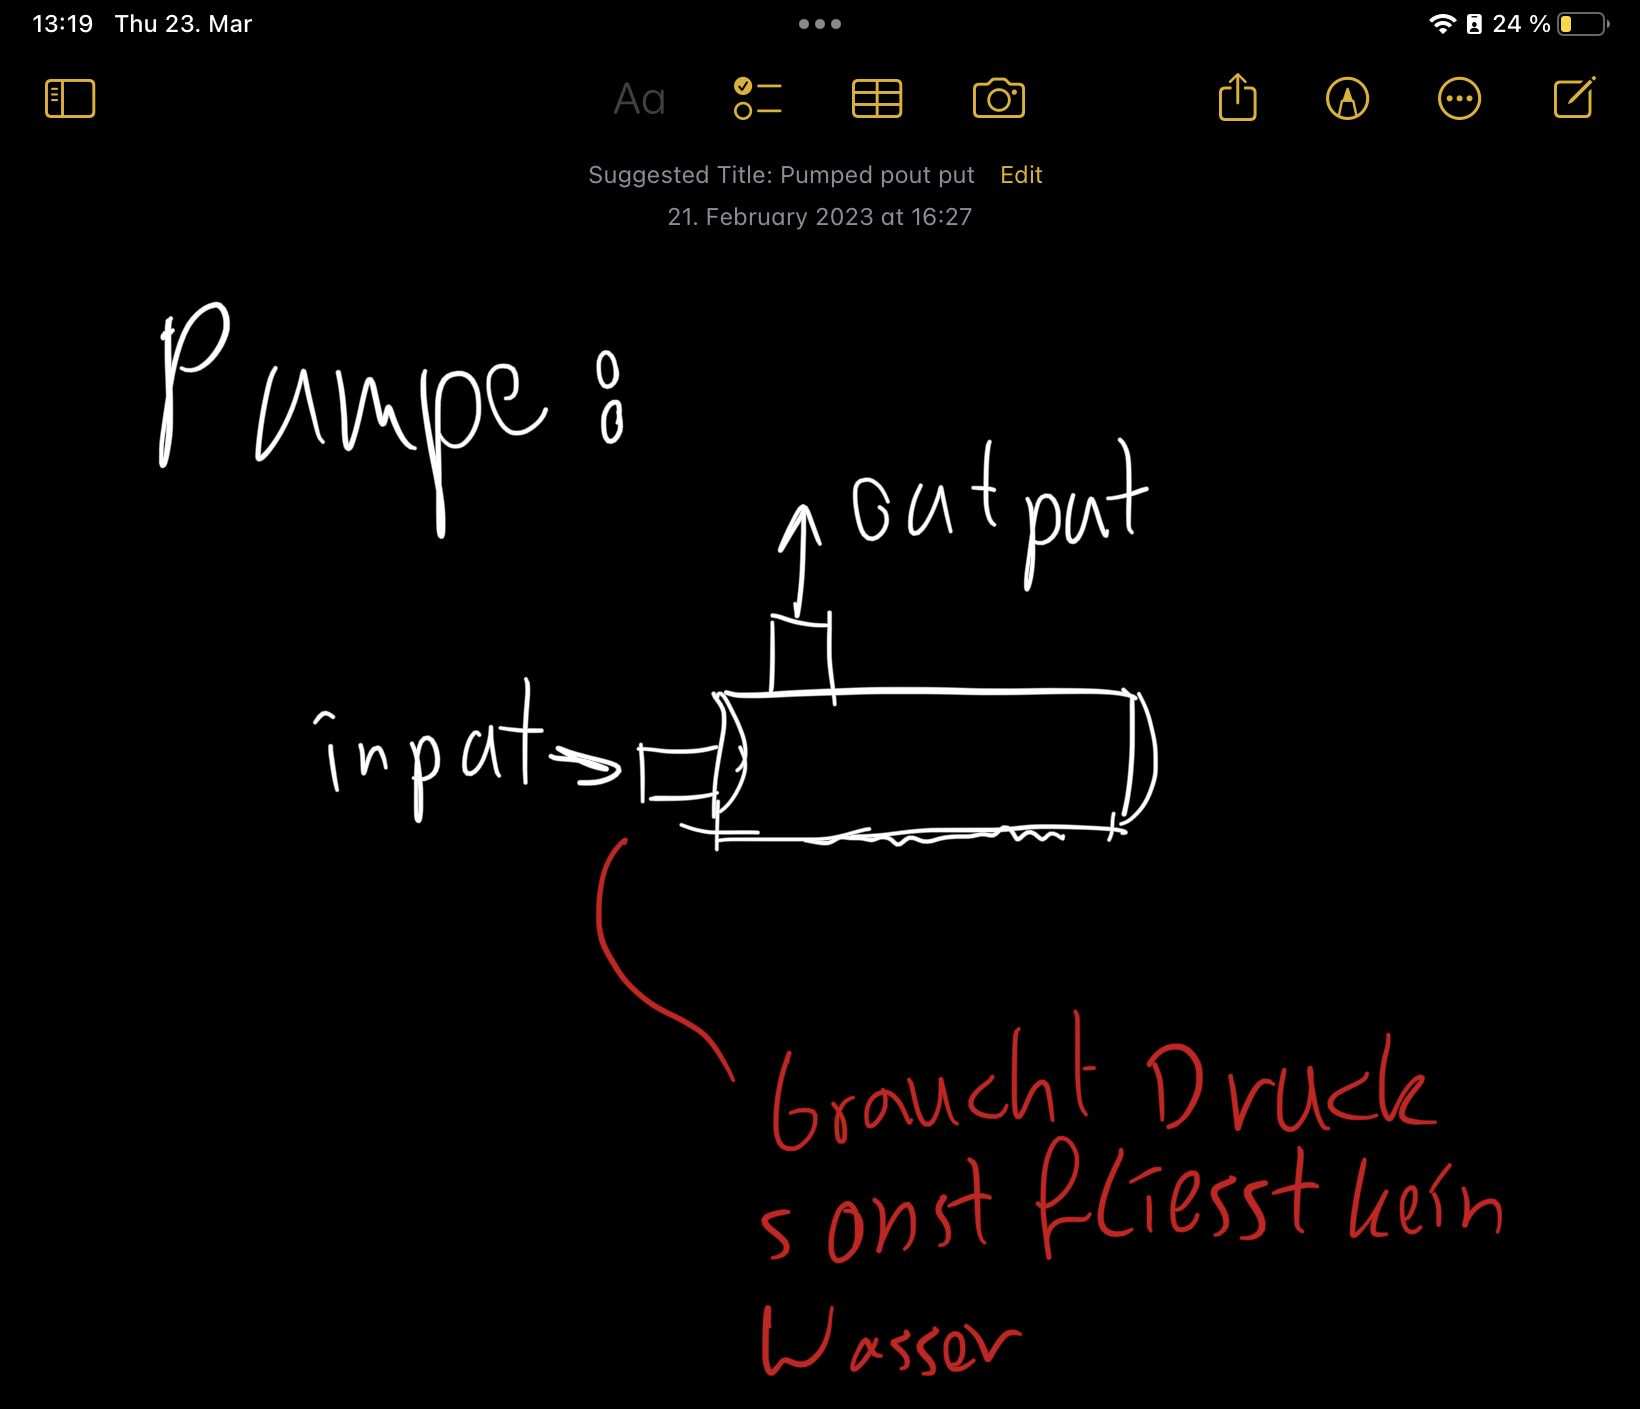 13:19 Thu 23. Mar
24 %
Aa
Suggested Title: Pumped pout put Edit
21. February 2023 at 16:27
Pumpe:
output
input
braucht Druck
sonst fliesst kein
Wasser